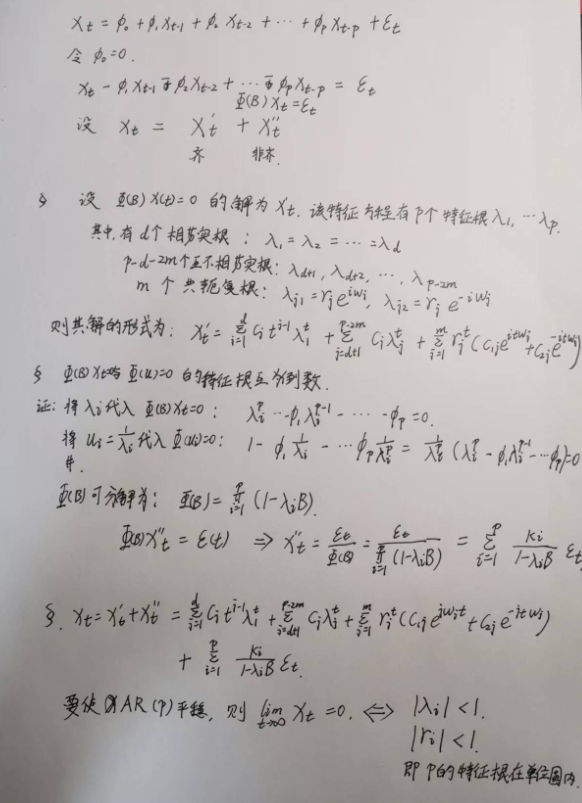 Xt = φ0 + φ1 Xt-1 + φ2 Xt-2 + ⋯ + φp Xt-p + εt
令 φ0=0.
Xt - φ1 Xt-1 - φ2 Xt-2 + ⋯ - φp Xt-p = εt
Φ(B) Xt = εt
设 Xt = Xt' + Xt''
齐 非齐.
§ 设 Φ(B) X(t)=0 的解为 Xt. 该特征方程有p个特征根 λ1, ⋯ λp.
其中, 有d个相等实根: λ1 = λ2 = ⋯ = λd
p-d-2m个互不相等实根: λd+1, λd+2, ⋯, λp-2m
m 个 共轭复根: λj1 = rj e^{iωj}, λj2 = rj e^{-iωj}
则其解的形式为: Xt' = Σ_{i=1}^{d} Ci t^{i-1} λ1^t + Σ_{j=d+1}^{p-2m} Cj λj^t + Σ_{j=1}^{m} rj^t (C1j e^{itωj} + C2j e^{-itωj})
§ Φ(B)Xt与 Φ(u)=0 的特征根互为倒数.
证: 将 λi 代入 Φ(B)Xt=0: λi^p - φ1 λi^{p-1} - ⋯ - φp = 0.
将 ui = 1/λi 代入 Φ(u)=0: 1 - φ1 1/λi - ⋯ φp 1/λi^p = 1/λi^p (λi^p - φ1 λi^{p-1} - ⋯ φp)=0
#.
Φ(B)可分解为: Φ(B) = Π_{i=1}^{p} (1-λiB).
Φ(B)Xt'' = ε(t) ⇒ Xt'' = εt/Φ(B) = εt/Π_{i=1}^{p}(1-λiB) = Σ_{i=1}^{p} ki/(1-λiB) εt
§. Xt = Xt' + Xt'' = Σ_{i=1}^{d} Ci t^{i-1} λ1^t + Σ_{j=d+1}^{p-2m} Cj λj^t + Σ_{j=1}^{m} rj^t (C1j e^{iωjt} + C2j e^{-itωj})
+ Σ_{i=1}^{p} ki/(1-λiB) εt.
要使 AR(p)平稳, 则 lim_{t→∞} Xt = 0. ⇔ |λi| < 1.
|ri| < 1.
即 p的特征根在单位圆内.